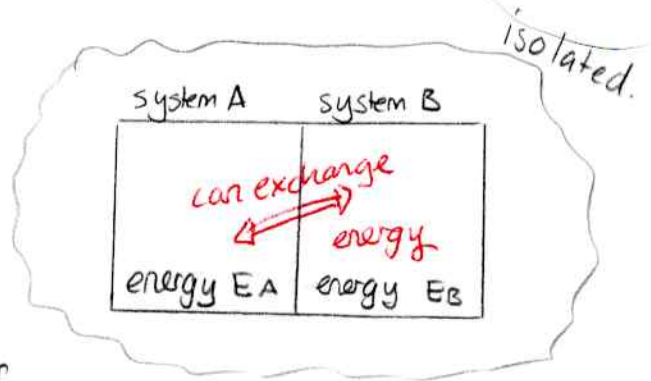 isolated.
system A system B
can exchange
energy
energy EA energy EB